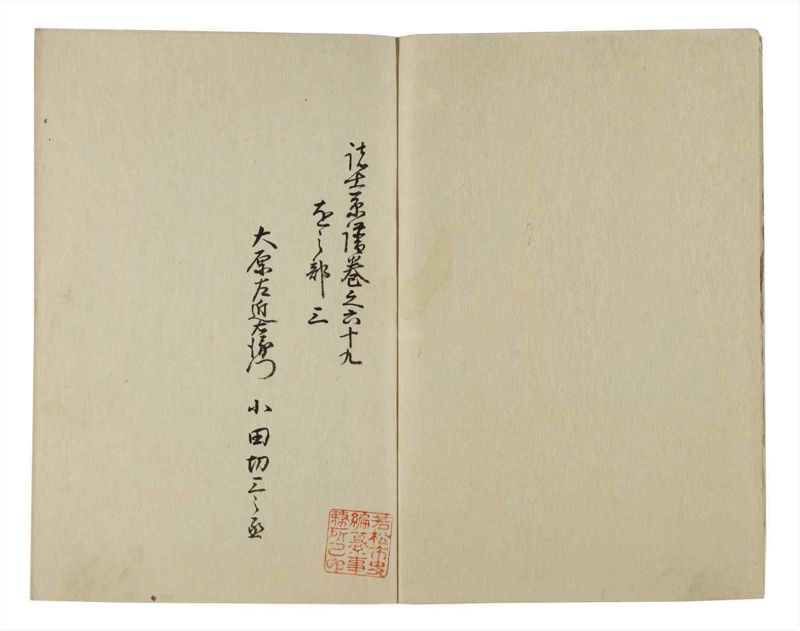 諸士系譜巻之六十九
をノ部 三
大原左近右衛門 小田切三之丞
若松市史
編纂事
務所之印